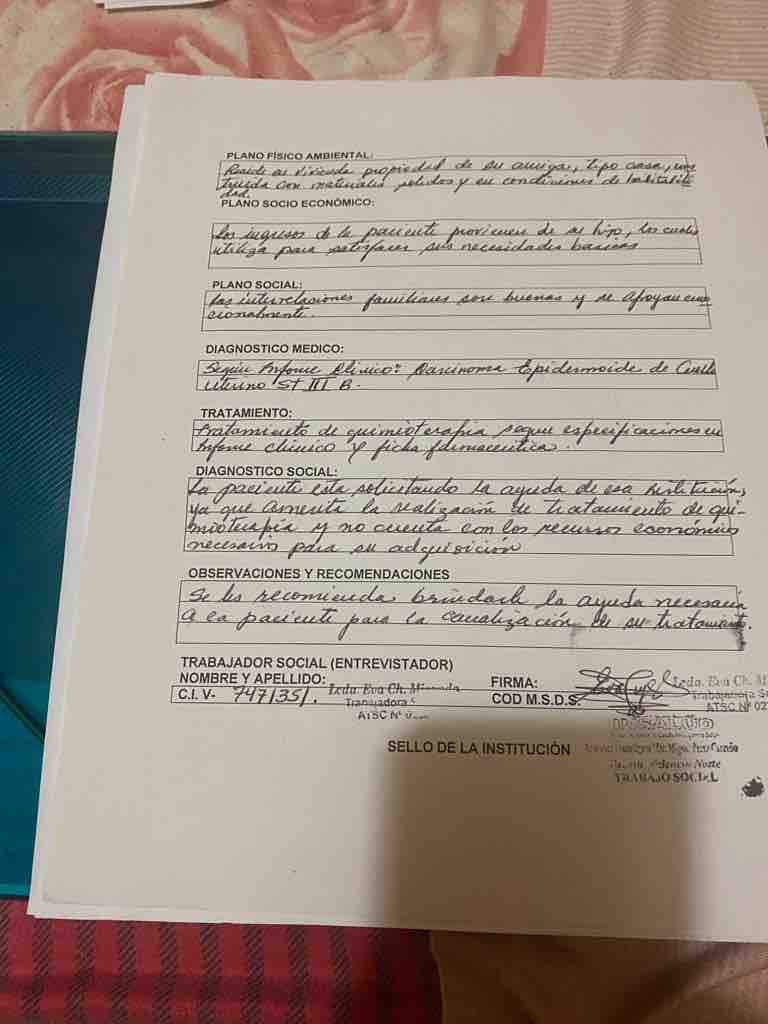 PLANO FÍSICO AMBIENTAL:
Reside en vivienda propiedad de su amiga, tipo casa, cons
truida con materiales solidos y en condiciones de habitabili
dad.
PLANO SOCIO ECONÓMICO:
Los ingresos de la paciente provienen de su hijo, los cuales
utiliza para satisfacer sus necesidades basicas
PLANO SOCIAL:
Las interrelaciones familiares son buenas y se apoyan emo
cionalmente.
DIAGNOSTICO MEDICO:
Según Informe Clinico: Carcinoma Epidermoide de Cuello
uterino ST III B.
TRATAMIENTO:
Tratamiento de quimioterapia segun especificaciones en
Informe clinico y ficha farmaceutica.
DIAGNOSTICO SOCIAL:
La paciente esta solicitando la ayuda de esa Institución,
ya que amerita la realización de tratamiento de qui-
mioterapia y no cuenta con los recursos económicos
necesarios para su adquisición
OBSERVACIONES Y RECOMENDACIONES
Se les recomienda brindarle la ayuda necesaria
a la paciente para la canalización de su tratamiento.
TRABAJADOR SOCIAL (ENTREVISTADOR)
NOMBRE Y APELLIDO: Lcda. Eva Ch.
C.I. V- 7471351.
ATSC Nº
FIRMA: Lcda. Eva Ch. M
COD M.S.D.S: Trabajadora S
ATSC Nº 02
SELLO DE LA INSTITUCIÓN
Norte
TRABAJO SOCIAL